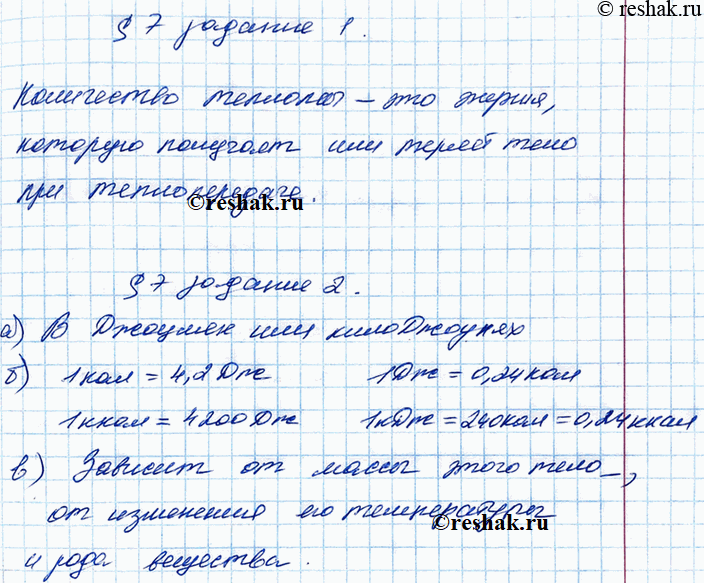 © reshak.ru
§ 7 задание 1.
Количество теплоты – это энергия,
которую получает или теряет тело
при теплопередаче.
© reshak.ru
§ 7 задание 2.
а) В Джоулях или килоДжоулях
б) 1 кал = 4,2 Дж 1 Дж = 0,24 кал
1 ккал = 4200 Дж 1 кДж = 240 кал = 0,24 ккал
в) Зависит от массы этого тела,
от изменения его температуры
© reshak.ru
и рода вещества.